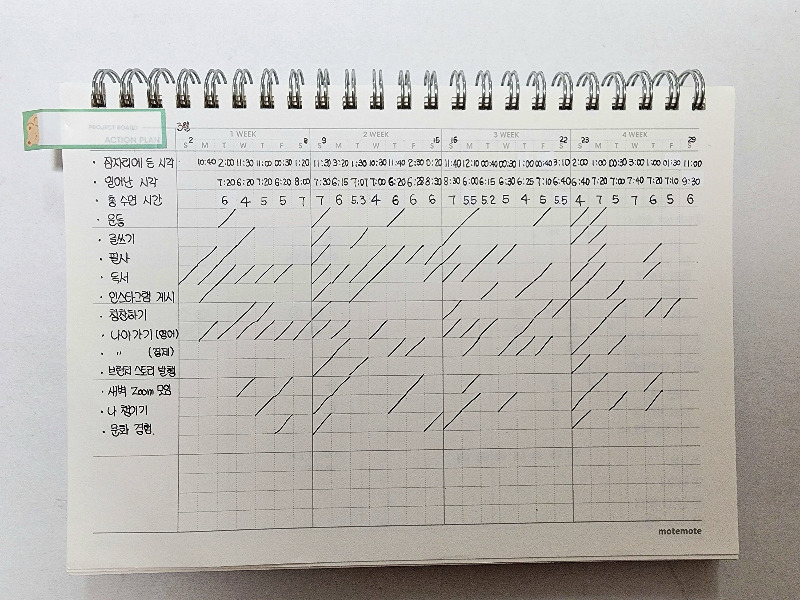 PROJECT
ACTION PLAN
3월
1 WEEK 2 WEEK 3 WEEK 4 WEEK
2 8 9 15 16 22 23 29
S M T W T F S S M T W T F S S M T W T F S S M T W T F S
· 잠자리에 든 시각 10:40 2:00 11:30 11:00 00:30 1:20 11:30 3:20 11:30 10:30 11:40 2:30 0:20 11:40 12:10 00:40 00:30 01:00 00:40 3:10 2:00 1:00 00:50 3:00 1:00 01:30 11:00
· 일어난 시각 7:20 6:20 7:20 6:20 8:00 7:30 6:15 7:07 7:00 6:20 6:28 8:30 8:30 6:00 6:15 6:30 6:25 7:10 6:40 6:40 7:20 7:00 7:40 7:20 6:20 9:30
· 총 수면 시간 6 4 5 5 7 7 6 5.3 4 6 6 6 7 5.5 5.2 5 4 5 5.5 4 7 5 7 6 5 6
· 운동
· 글쓰기
· 필사
· 독서
· 인스타그램 게시
· 칭찬하기
· 나아가기 (영어)
· " (경제)
· 브런치 스토리 발행
· 새벽 Zoom 모임
· 나 챙기기
· 문화 경험.
motemote